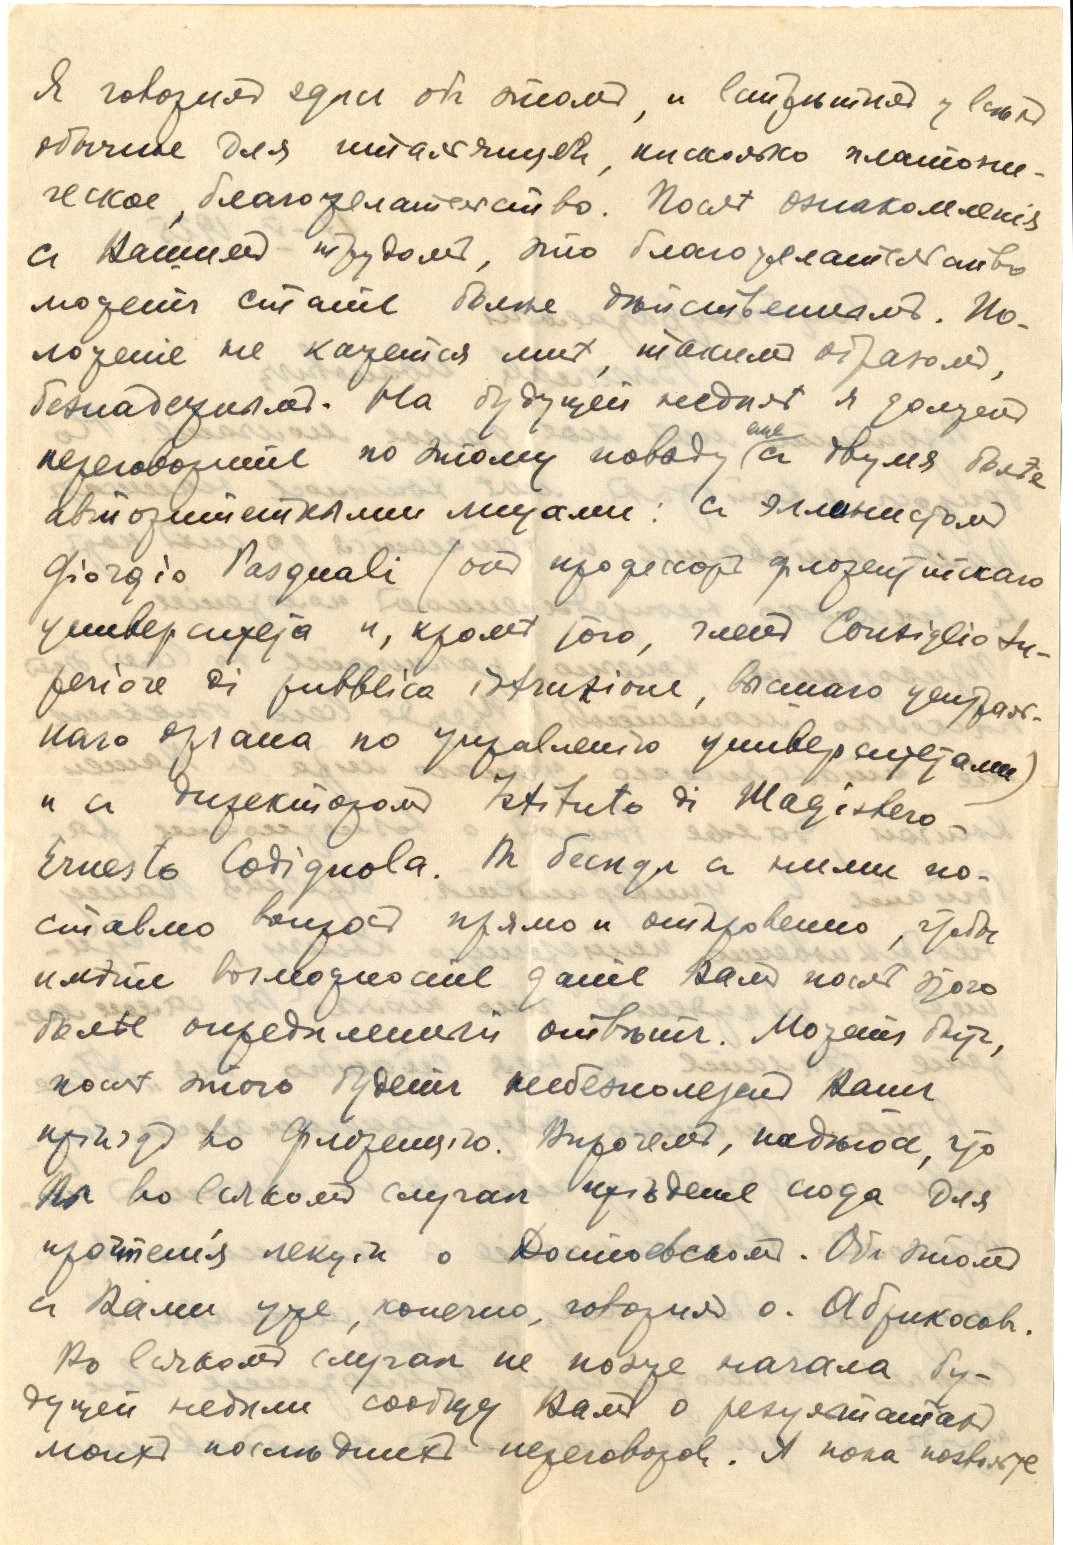 Я говорилъ здѣсь объ этомъ, и встрѣтилъ у всѣхъ
обычное для итальянцевъ, нисколько платони-
ческое, благожелательство. Послѣ ознакомленія
съ Вашимъ трудомъ, это благожелательство
можетъ стать болѣе дѣйственнымъ. По-
ложеніе не кажется мнѣ, такимъ образомъ,
безнадежнымъ. На будущей недѣлѣ я долженъ
переговорить по этому поводу еще съ двумя болѣе
авторитетными лицами: съ эллинистомъ
Giorgio Pasquali (онъ профессоръ флорентійскаго
университета и, кромѣ того, членъ Consiglio Su-
periore di pubblica istruzione, высшаго централь-
наго органа по управленію университетами)
и съ директоромъ Istituto di Magistero –
Ernesto Codignola. Въ бесѣдѣ съ ними по-
ставлю вопросъ прямо и откровенно, чтобы
имѣть возможность дать Вамъ послѣ этого
болѣе опредѣленный отвѣтъ. Можетъ быть,
послѣ этого будетъ небезполезенъ Вашъ
пріѣздъ во Флоренцію. Впрочемъ, надѣюсь, что
Вы во всякомъ случаѣ пріѣдете сюда для
прочтенія лекціи о Достоевскомъ. Объ этомъ
съ Вами уже, конечно, говорилъ о. Абрикосовъ.
Во всякомъ случаѣ не позже начала бу-
дущей недѣли сообщу Вамъ о результатахъ
моихъ послѣднихъ переговоровъ. А пока позвольте